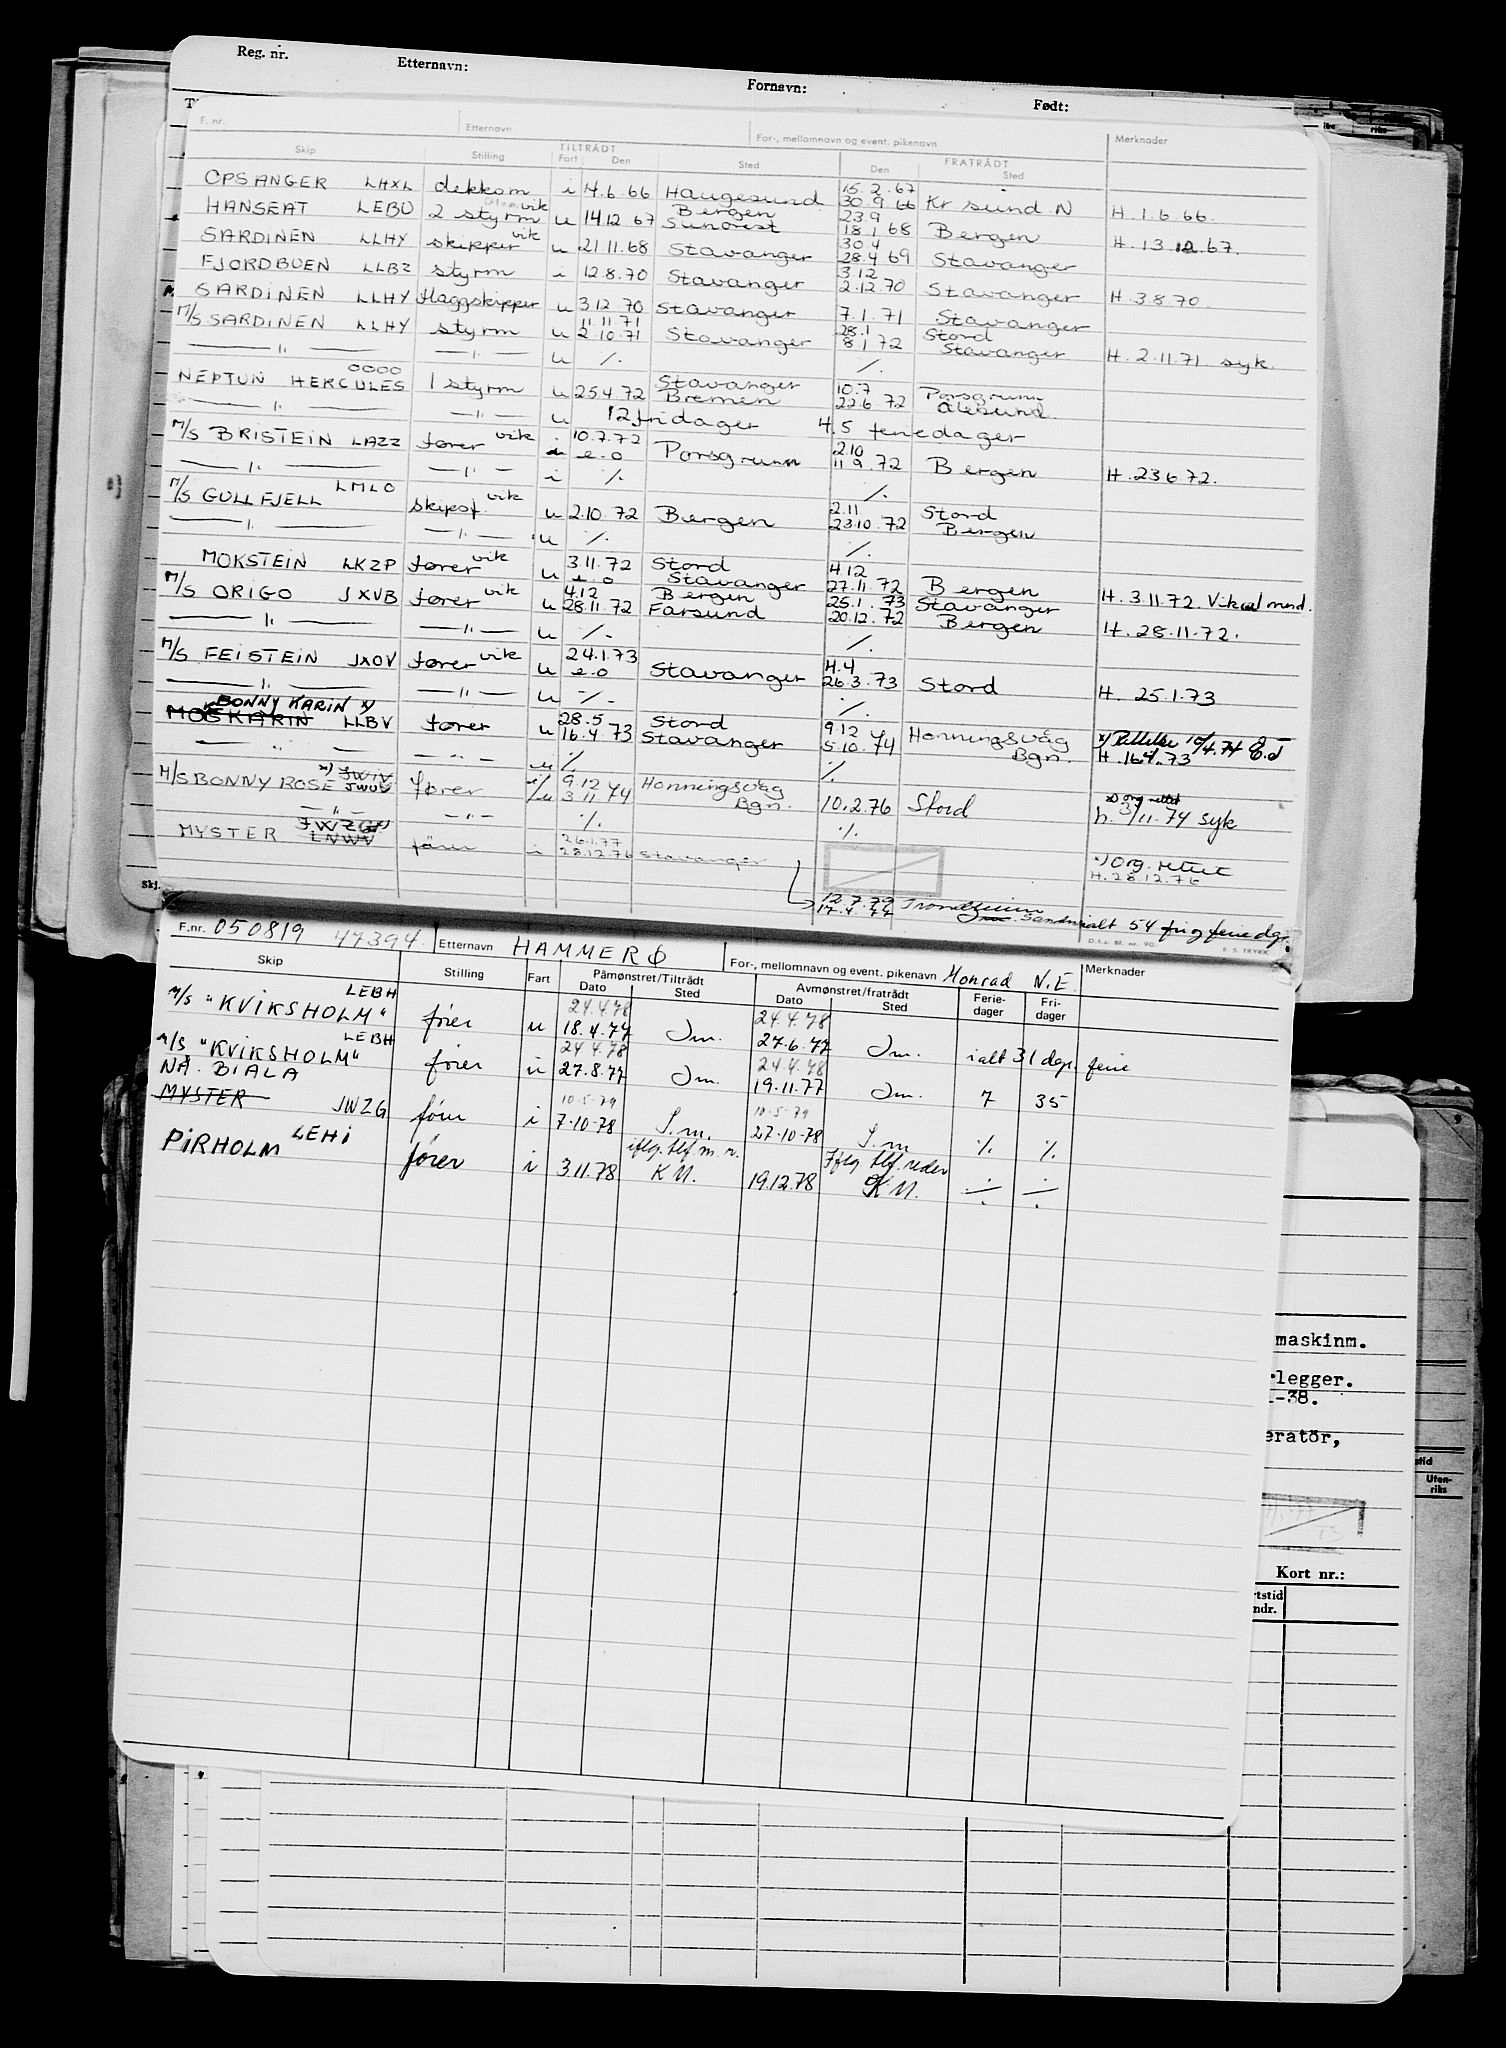 Reg. nr. Etternavn: Fornavn: Født:
F. nr. Etternavn For-, mellomnavn og event. pikenavn Merknader
TILTRÅDT FRATRÅDT
Skip Stilling Fart Den Sted Den Sted
15.2.67
OPSANGER LHXL dekksm i 14.6.66 Haugesund 30.9.66 Kr.sund.N H.1.6.66.
vik Bergen 23.9
HANSEAT LEBU 2 styrm u 14.12 67 Sundrest 18.1 68 Bergen H.13 12.67.
vik 30.4
SARDINEN LLHY skipper u 21.11.68 Stavanger 28.4 69 Stavanger
3.12
FJORDBUEN LLBZ styrm i 12.8.70 Stavanger 2.12.70 Stavanger H.3.8.70.
SARDINEN LLHY flaggskipper u 3.12.70 Stavanger 7.1.71 Stavanger
11.11.71 28.1 Stord
M/S SARDINEN LLHY styrm u 2.10.71 Stavanger 8.1.72 Stavanger H.2.11.71 syk.
—— " —— — " — u ·/. ·/.
OOOO Stavanger 10.7 Porsgrunn
NEPTUN HERCULES 1 styrm u 25.4.72 Bremen 22.6.72 Ålesund
—— " —— — " — u 12 fridager 4.5 feriedager
vik 10.7.72 2.10
M/S BRISTEIN LAZZ fører i e.o Porsgrunn 11.9.72 Bergen H.23.6.72.
—— " —— — " — i ·/. ·/.
LMLO vik 2.11 Stord
M/S GULLFJELL skipsf. u 2.10.72 Bergen 23.10.72 Bergen
—— " —— — " — u ·/. ·/.
vik 3.11.72 Stord 4.12
MOKSTEIN LKZP fører u e.o Stavanger 27.11.72 Bergen H.3.11.72.
vik 4.12 Bergen 25.1.73 Stavanger
M/S ORIGO JXVB fører u 28.11.72 Farsund 20.12.72 Bergen H.28.11.72.
—— " —— — " — u ·/. ·/.
vik 24.1.73 4.4
M/S FEISTEIN JXOV fører u e.o Stavanger 26.3.73 Stord H. 25.1.73
—— " —— — " — u ·/. ·/.
BONNY KARIN x) 28.5 Stord 9.12
MOSKARIN LLBV fører u 16.4.73 Stavanger 5.10.74 Honningsvåg Bgn. H.16.4.73
— " — — " — u ·/. ·/.
x) JWIV 9.12
M/S BONNY ROSE JWUV fører i/u 3.11.74 Honningsvåg Bgn. 10.2.76 Stord h. 3/11.74 syk
x) org rettet
— " — — " — ·/. ·/.
JWZG
MYSTER LNWV fører i 26.1.77
28.12.76 Stavanger x) org. rettet
H.28.12.76
12.7.79 Trondheim
17.4.77 ialt 54 fri og ferie dgr.
Skj. D.f.s. Bl. nr. 90. E. S. TRYKK
F.nr. 050819 47394 Etternavn HAMMERØ For-, mellomnavn og event. pikenavn Monrad N.E. Merknader
Skip Stilling Fart Påmønstret/Tiltrådt Avmønstret/fratrådt Ferie-dager Fri-dager
Dato Sted Dato Sted
LEBH 24.4.78 24.4.78
M/S "KVIKSHOLM" fører u 18.4.77 Im. 27.6.77 Im. ialt 31 dgr. ferie
LEBH 24.4.78 24.4.78
M/S "KVIKSHOLM" fører u 27.8.77 Im. 19.11.77 Im. 7 35
NÅ. BIALA 10.5.79 10.5.79
MYSTER JWZG fører i 7.10.78 S.m. 27.10.78 S.m ·/. ·/.
iflg. tlf m. r. Iflg tlf. reder
PIRHOLM LEHI fører i 3.11.78 K.M. 19.12.78 K.M. ·/. ·/.
maskinm.
rlegger.
-38.
eratör,
stid
Uten-
riks
Kort nr.:
rtstid
ndr.